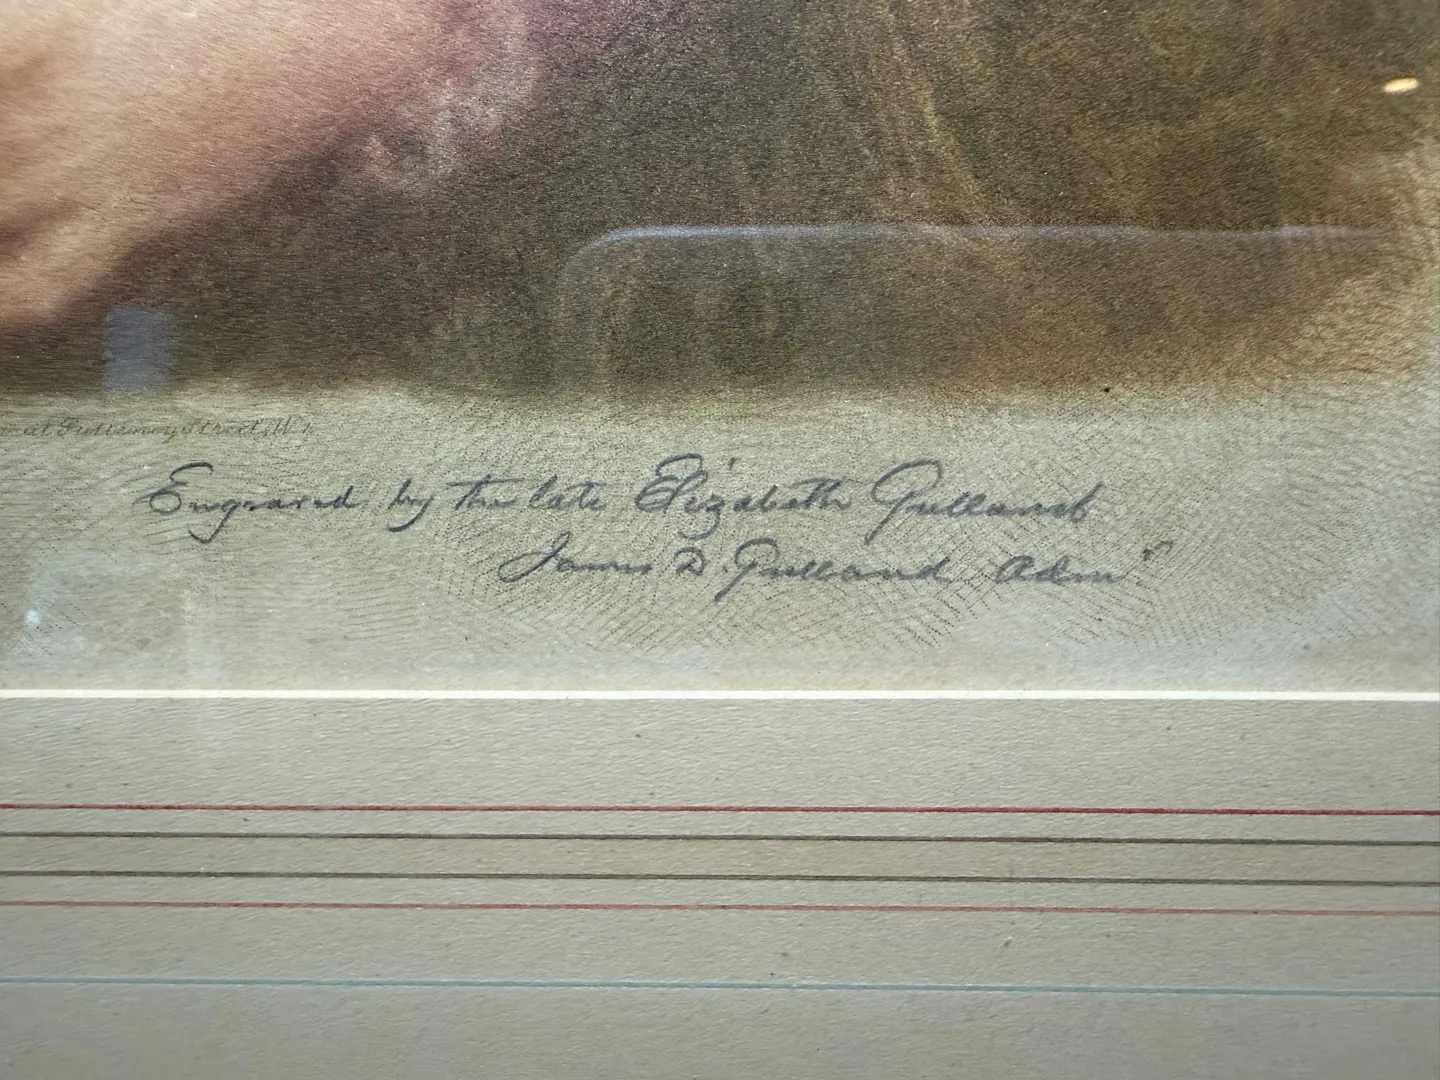 at Pulteney Street, W.
Engraved by the late Elizabeth Gulland
James D. Gulland Admr